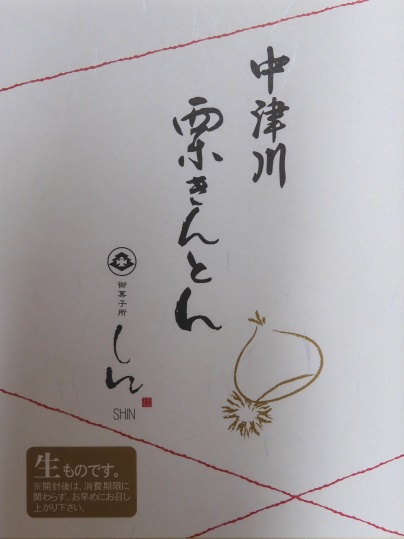 中津川
栗きんとん
御菓子所
しん
SHIN
生ものです。
※開封後は、消費期限に
関わらず、お早めにお召し
上がり下さい。